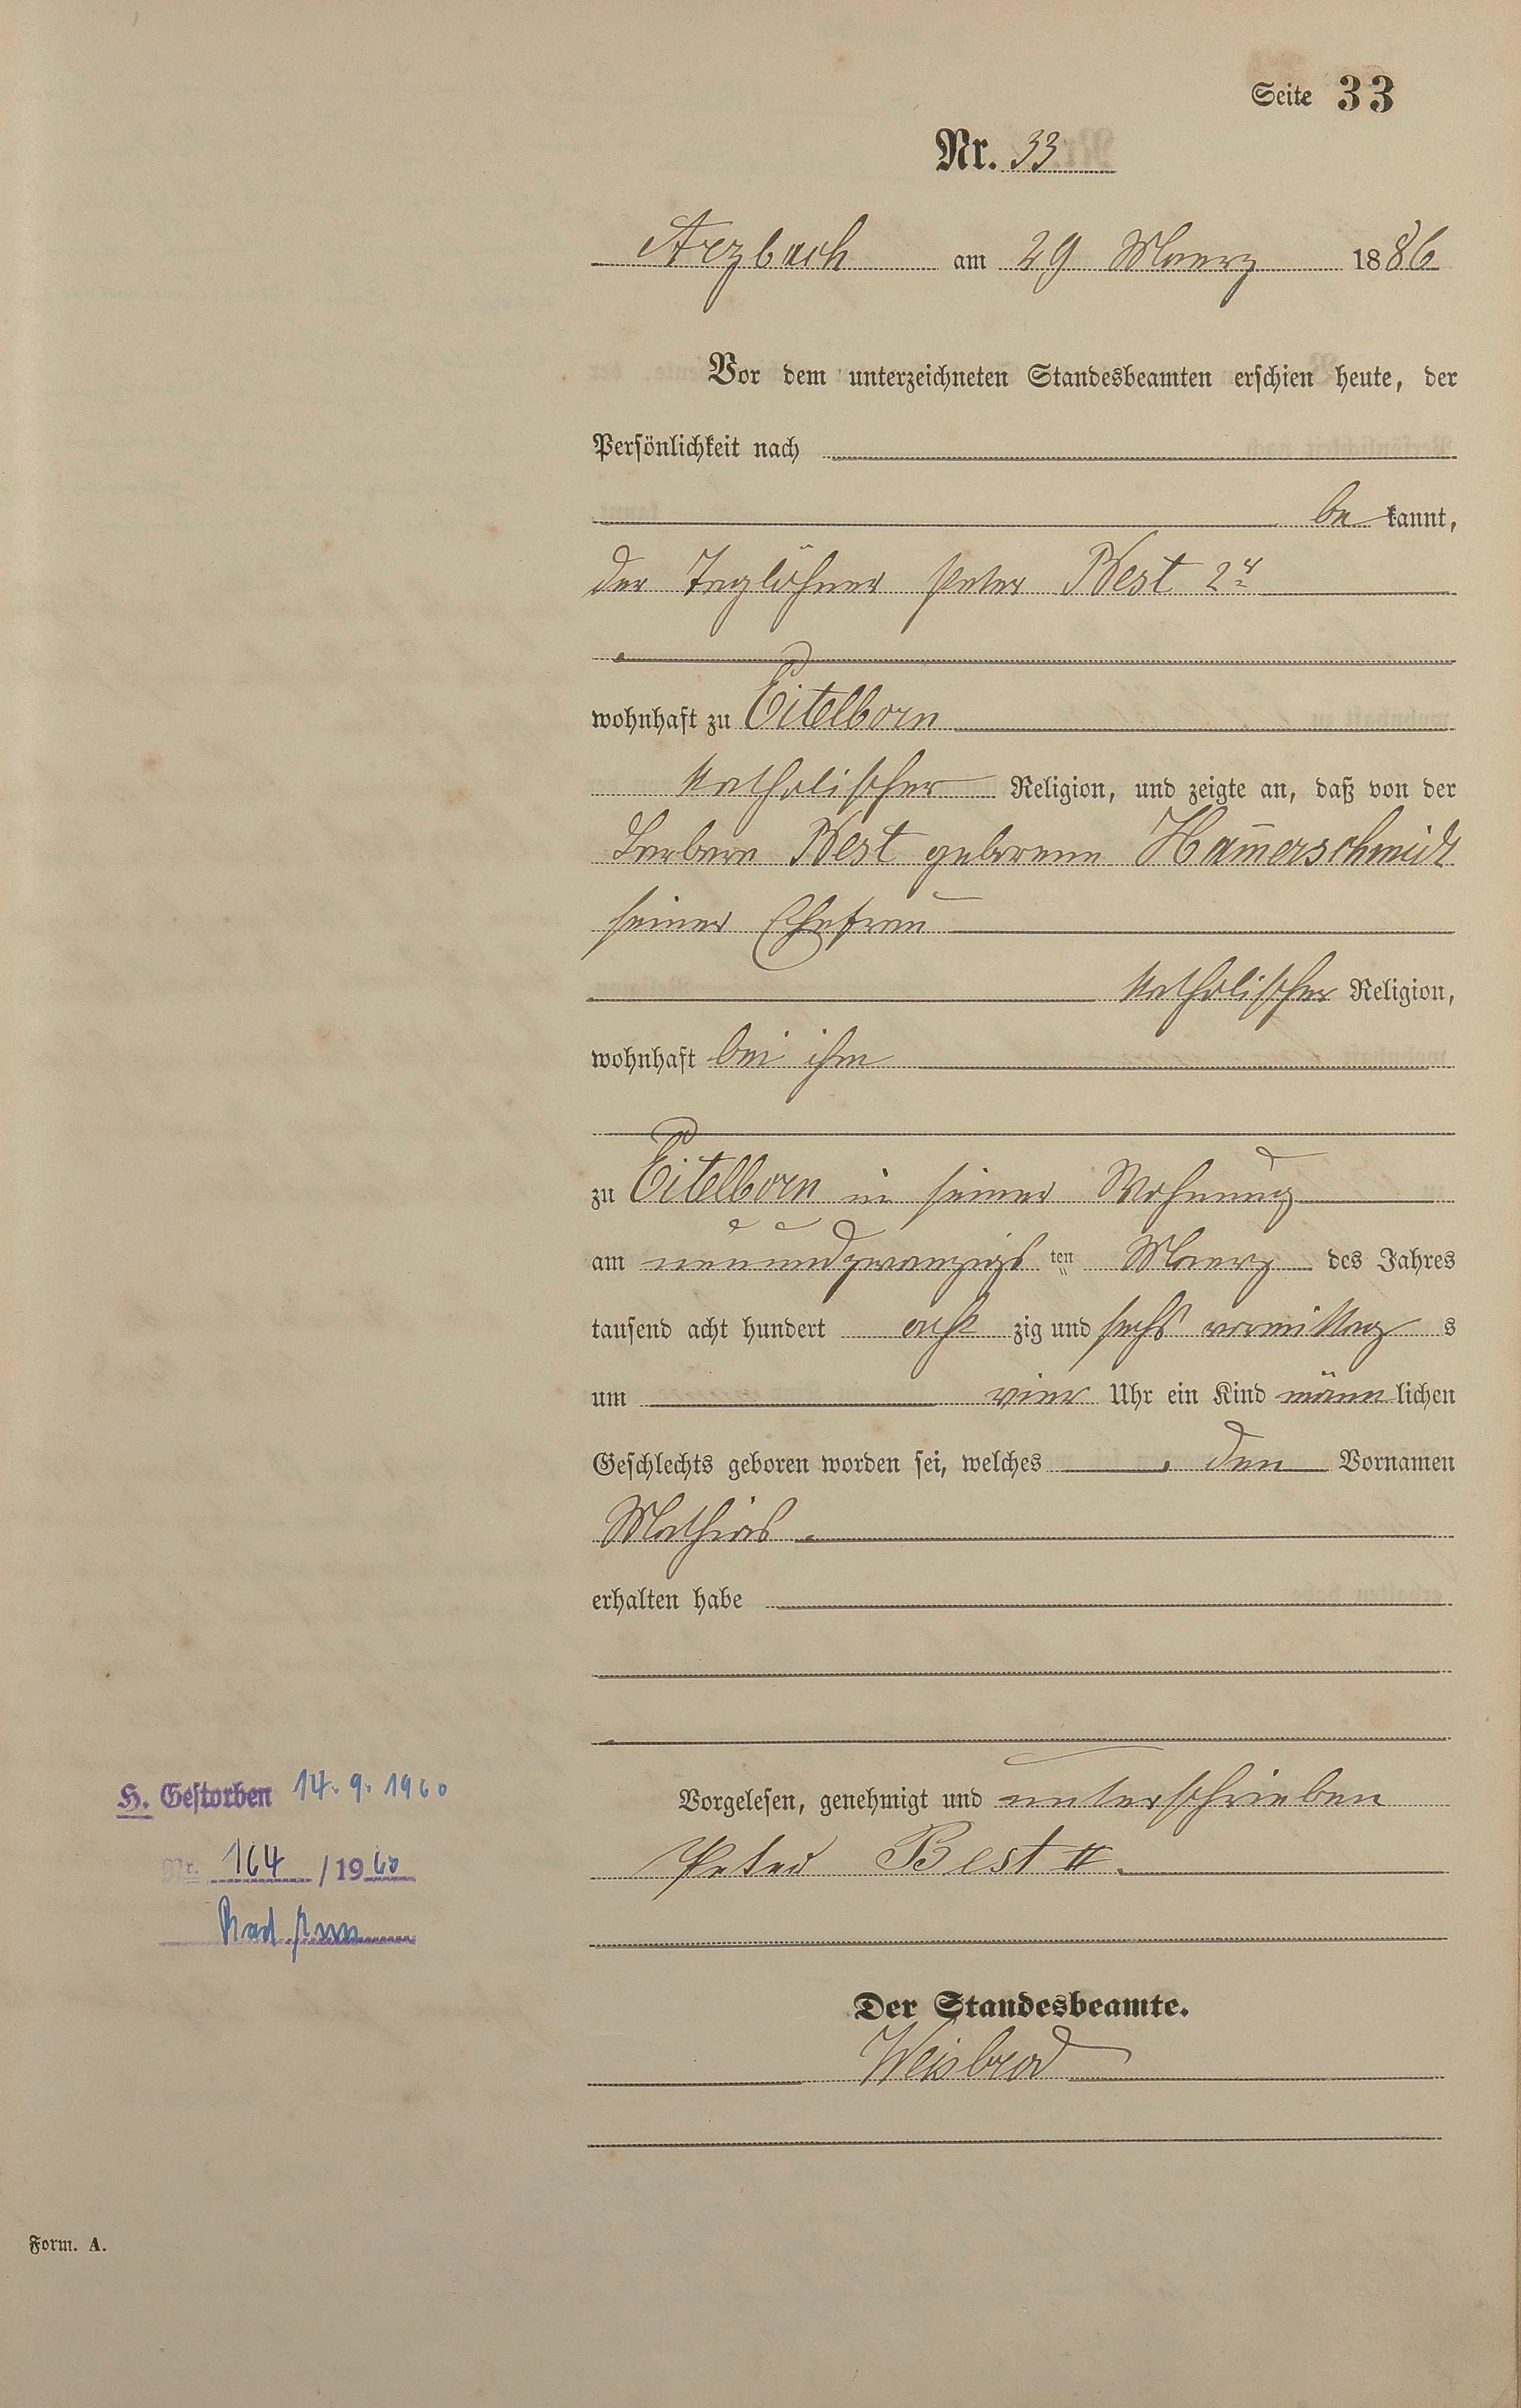 Seite 33
Nr. 33
Arzbach am 29 Maerz 1886
Vor dem unterzeichneten Standesbeamten erschien heute, der
Persönlichkeit nach
bekannt,
der Taglöhner Peter Best 2r
wohnhaft zu Eitelborn
katholischer Religion, und zeigte an, daß von der
Barbara Best geborene Ham̅erschmidt
seiner Ehefrau
katholischer Religion,
wohnhaft bei ihm
zu Eitelborn in seiner Wohnung
am neunundzwanzigsten Maerz des Jahres
tausend acht hundert achtzig und sechs vormittags
um vier Uhr ein Kind männlichen
Geschlechts geboren worden sei, welches den Vornamen
Mathias
erhalten habe
Vorgelesen, genehmigt und unterschrieben
Peter Best II.
Der Standesbeamte.
Weisbrod
H. Gestorben 14.9.1960
Nr. 164/1960
Bad Ems
Form. A.